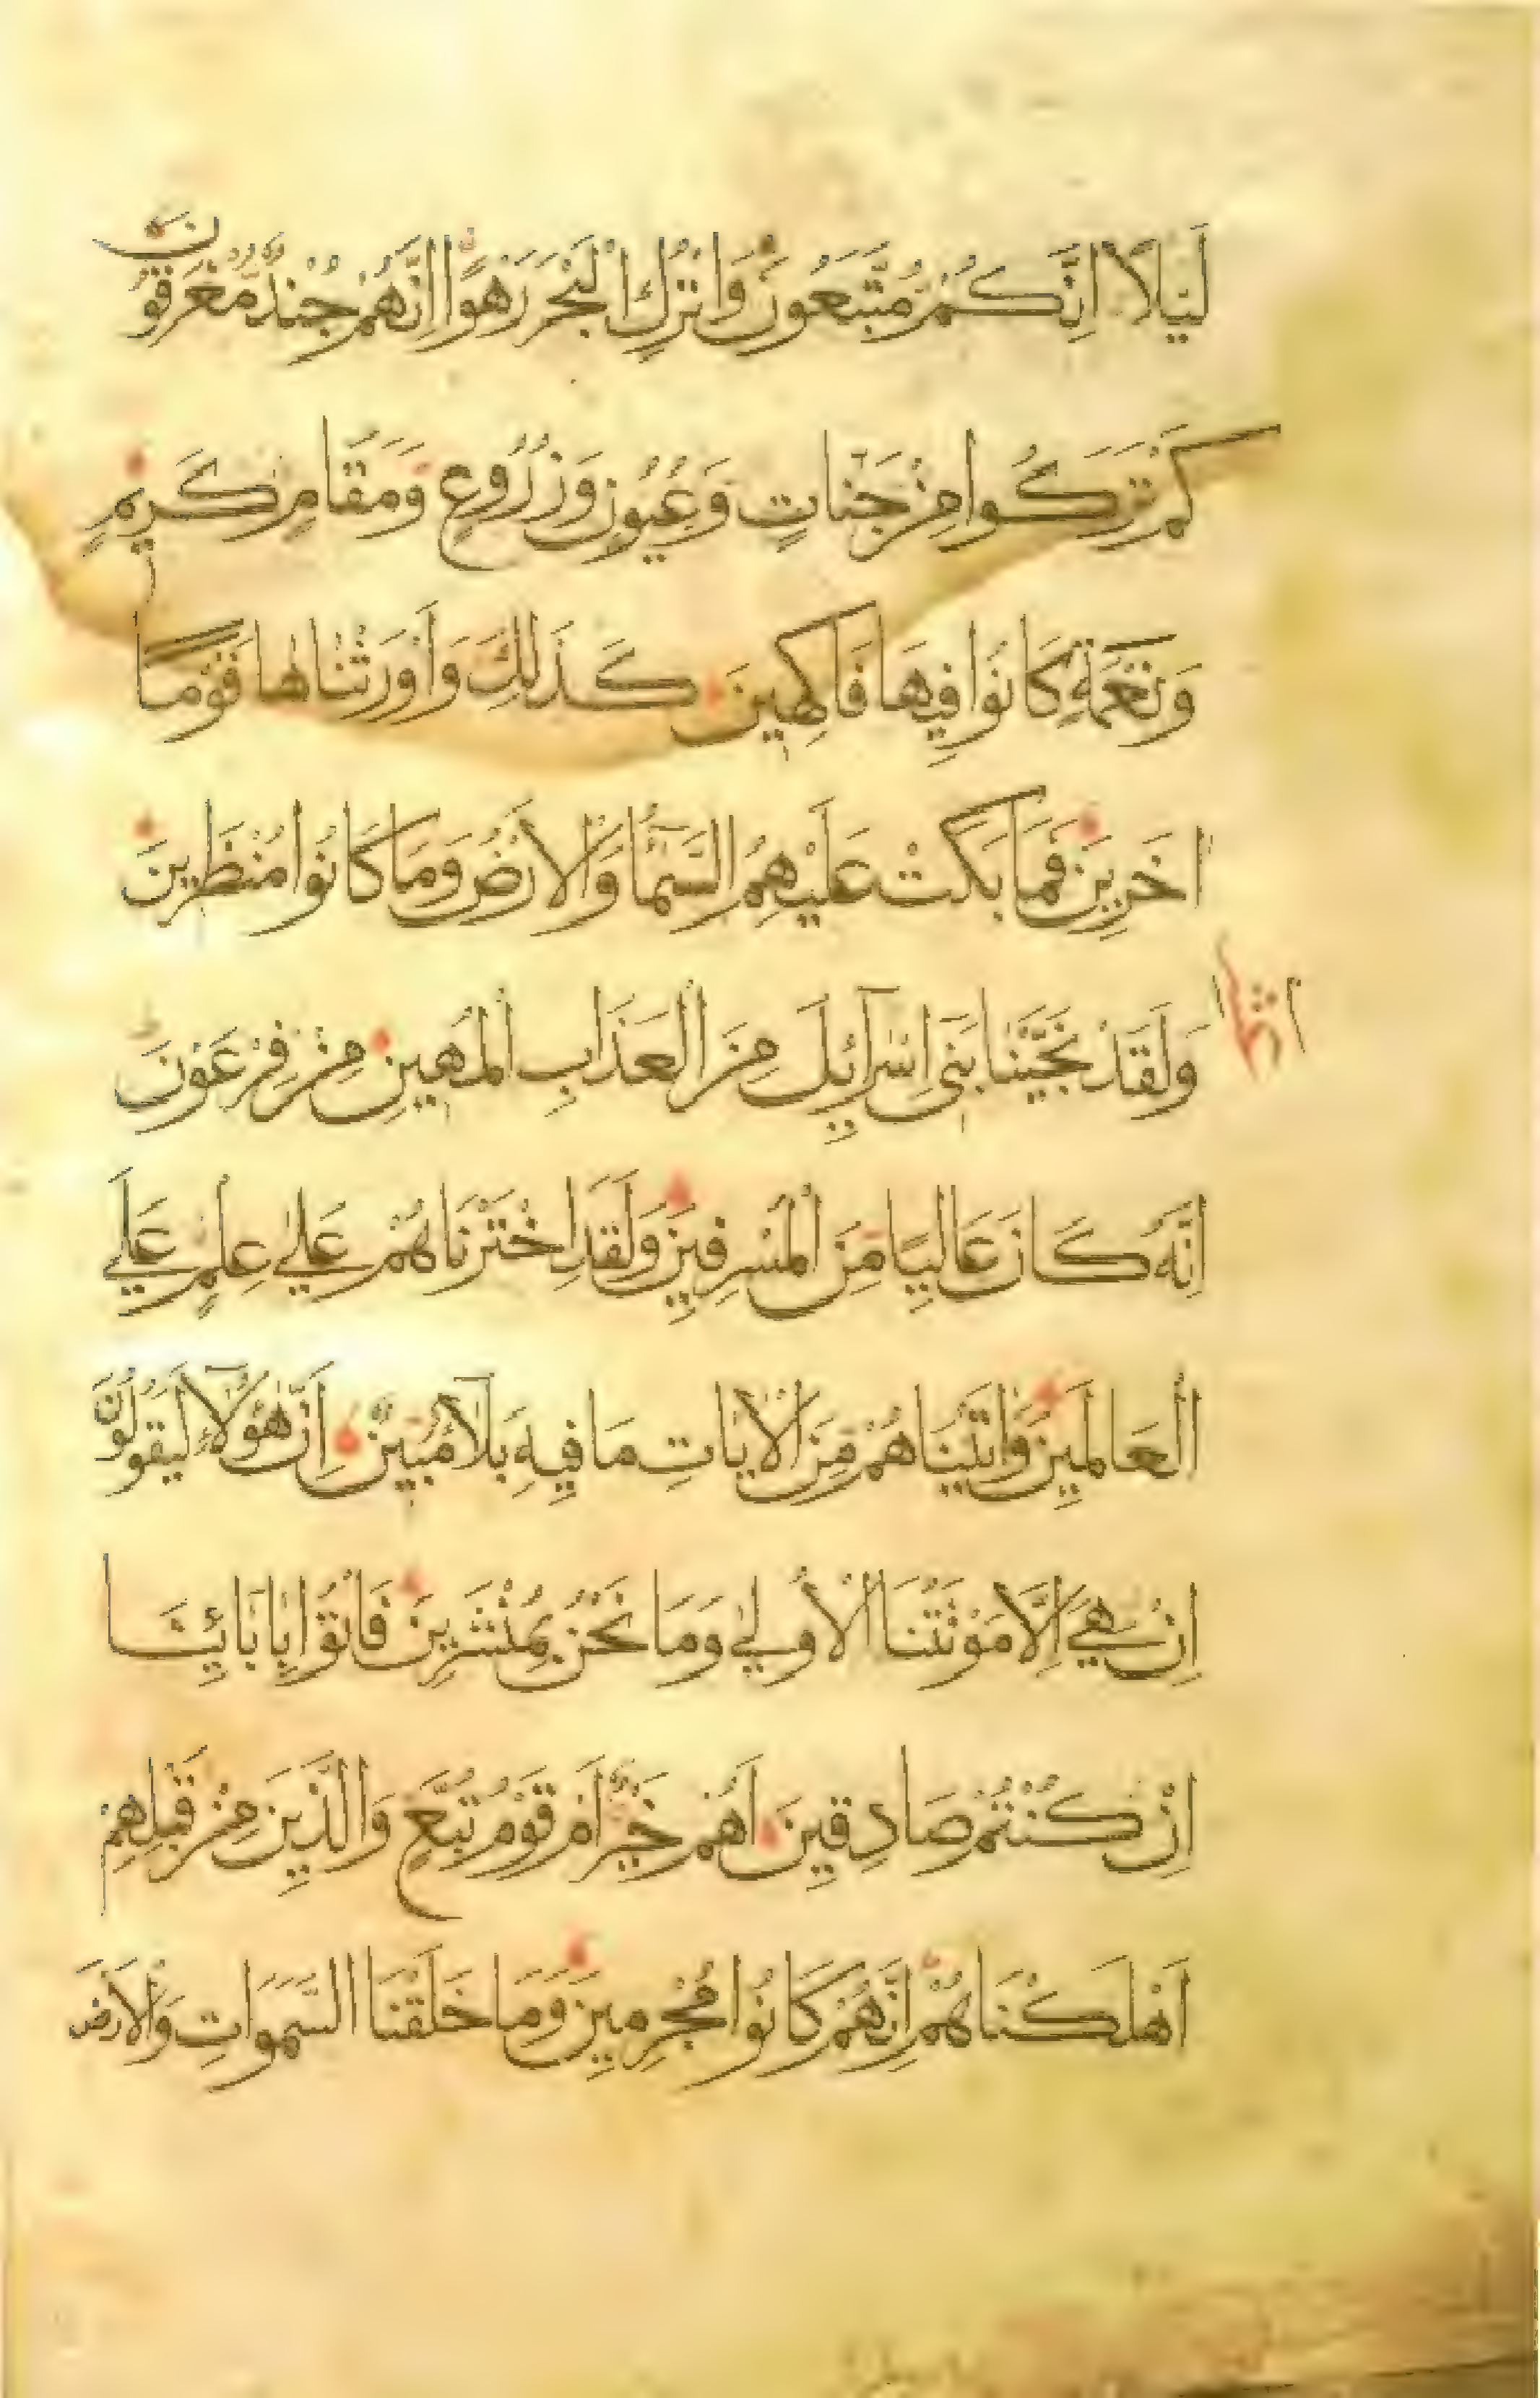 لَيْلًا اِنَّكُمْ مُتَّبَعُونَ وَاتْرُكِ الْبَحْرَ رَهْوًا اِنَّهُمْ جُنْدٌ مُغْرَقُونَ
كَمْ تَرَكُوا مِنْ جَنَّاتٍ وَعُيُونٍ وَزُرُوعٍ وَمَقَامٍ كَرِيمٍ
وَنَعْمَةٍ كَانُوا فِيهَا فَاكِهِينَ كَذَلِكَ وَاَوْرَثْنَاهَا قَوْمًا
اخَرِينَ فَمَا بَكَتْ عَلَيْهِمُ السَّمَآءُ وَالْاَرْضُ وَمَا كَانُوا مُنْظَرِينَ
وَلَقَدْ نَجَّيْنَا بَنِى اِسْرَآئِيلَ مِنَ الْعَذَابِ الْمُهِينِ مِنْ فِرْعَوْنَ
اِنَّهُ كَانَ عَالِيًا مِنَ الْمُسْرِفِينَ وَلَقَدِ اخْتَرْنَاهُمْ عَلَى عِلْمٍ عَلَى
الْعَالَمِينَ وَاتَيْنَاهُمْ مِنَ الْايَاتِ مَا فِيهِ بَلَآءٌ مُبِينٌ اِنَّ هٰؤُلَآءِ لَيَقُولُونَ
اِنْ هِيَ اِلَّا مَوْتَتُنَا الْاُولَي وَمَا نَحْنُ بِمُنْشَرِينَ فَاْتُوا بِابَائِنَا
اِنْ كُنْتُمْ صَادِقِينَ اَهُمْ خَيْرٌ اَمْ قَوْمُ تُبَّعٍ وَالَّذِينَ مِنْ قَبْلِهِمْ
اَهْلَكْنَاهُمْ اِنَّهُمْ كَانُوا مُجْرِمِينَ وَمَا خَلَقْنَا السَّمَوَاتِ وَالْاَرْضَ